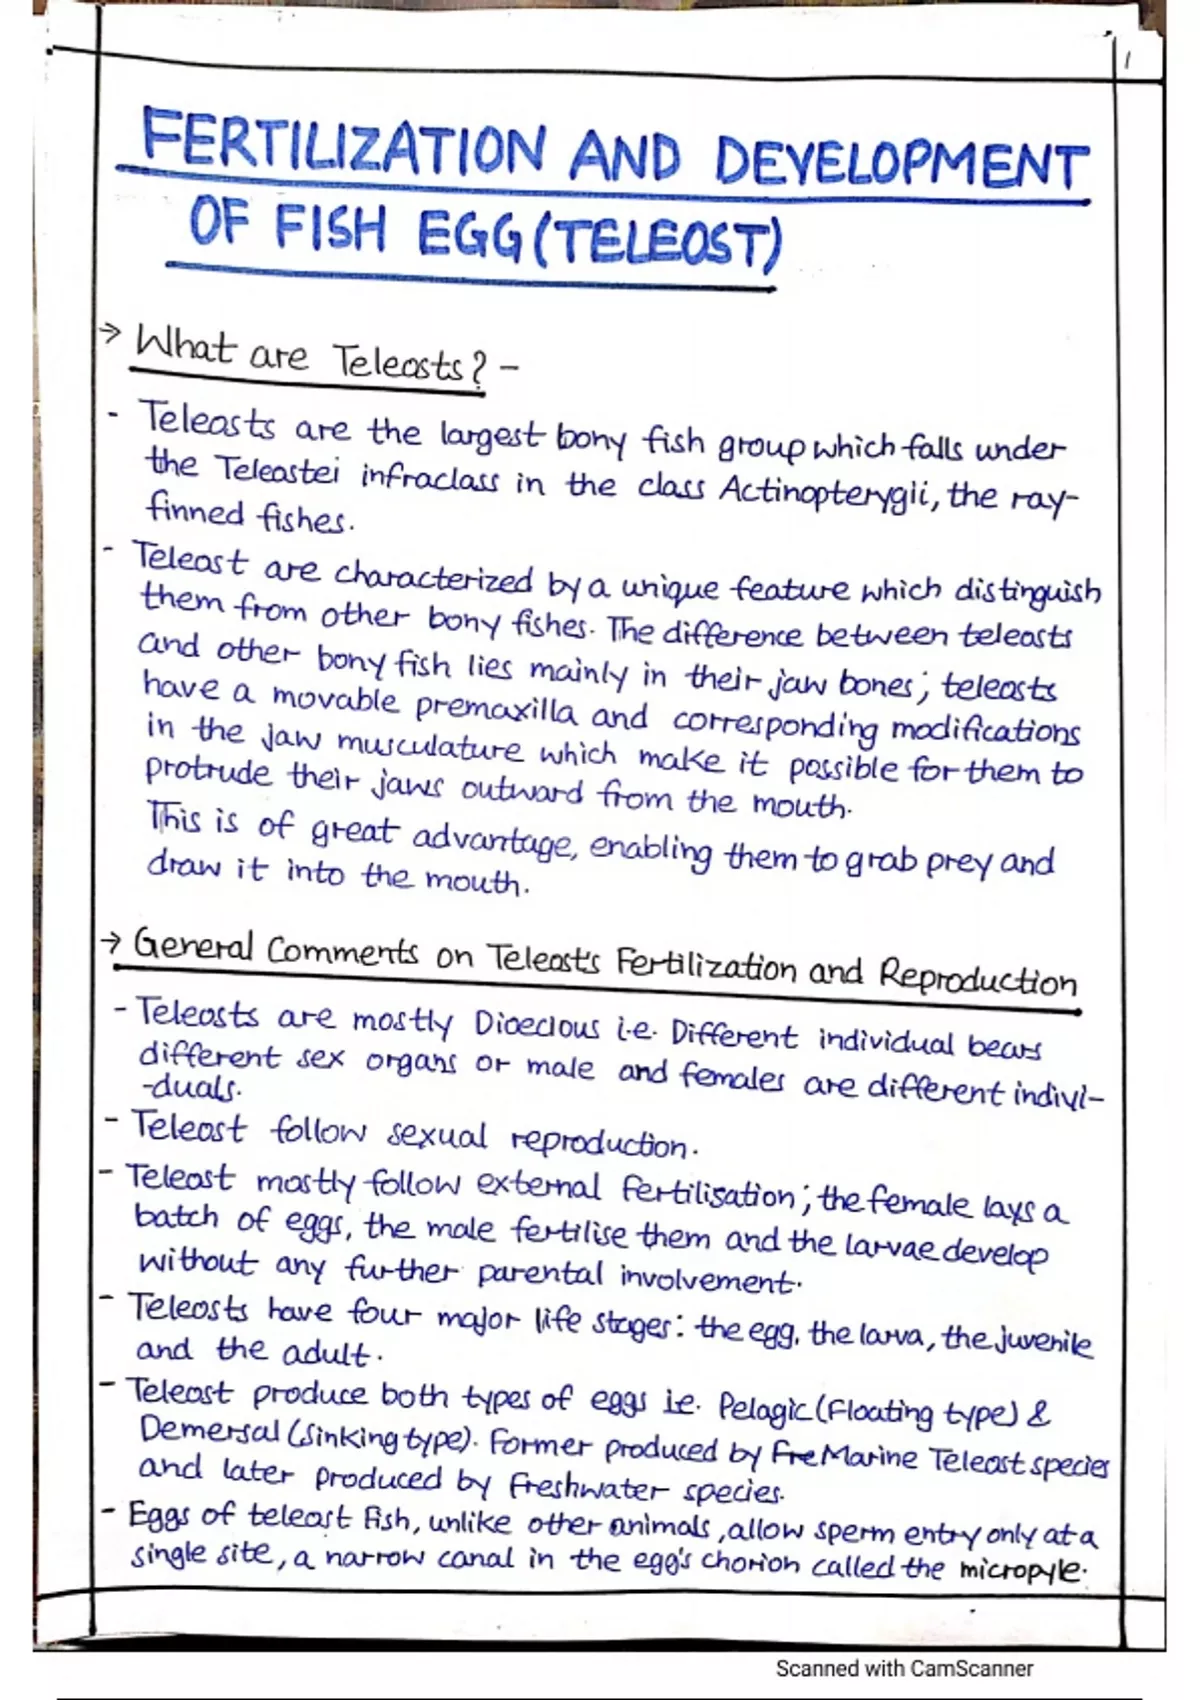 1
FERTILIZATION AND DEVELOPMENT
OF FISH EGG (TELEOST)
→ What are Teleosts? -
- Teleosts are the largest bony fish group which falls under
the Teleostei infraclass in the class Actinopterygii, the ray-
finned fishes.
- Teleost are characterized by a unique feature which distinguish
them from other bony fishes. The difference between teleosts
and other bony fish lies mainly in their jaw bones; teleosts
have a movable premaxilla and corresponding modifications
in the jaw musculature which make it possible for them to
protrude their jaws outward from the mouth.
This is of great advantage, enabling them to grab prey and
draw it into the mouth.
→ General Comments on Teleost's Fertilization and Reproduction
- Teleosts are mostly Dioecious i.e. Different individual bears
different sex organs or male and females are different indivi-
-duals.
- Teleost follow sexual reproduction.
- Teleost mostly follow external fertilisation; the female lays a
batch of eggs, the male fertilise them and the larvae develop
without any further parental involvement.
- Teleosts have four major life stages: the egg, the larva, the juvenile
and the adult.
- Teleost produce both types of eggs i.e. Pelagic (Floating type) &
Demersal (Sinking type). Former produced by Fre Marine Teleost species
and later produced by freshwater species.
- Eggs of teleost fish, unlike other animals, allow sperm entry only at a
single site, a narrow canal in the egg's chorion called the micropyle.
Scanned with CamScanner